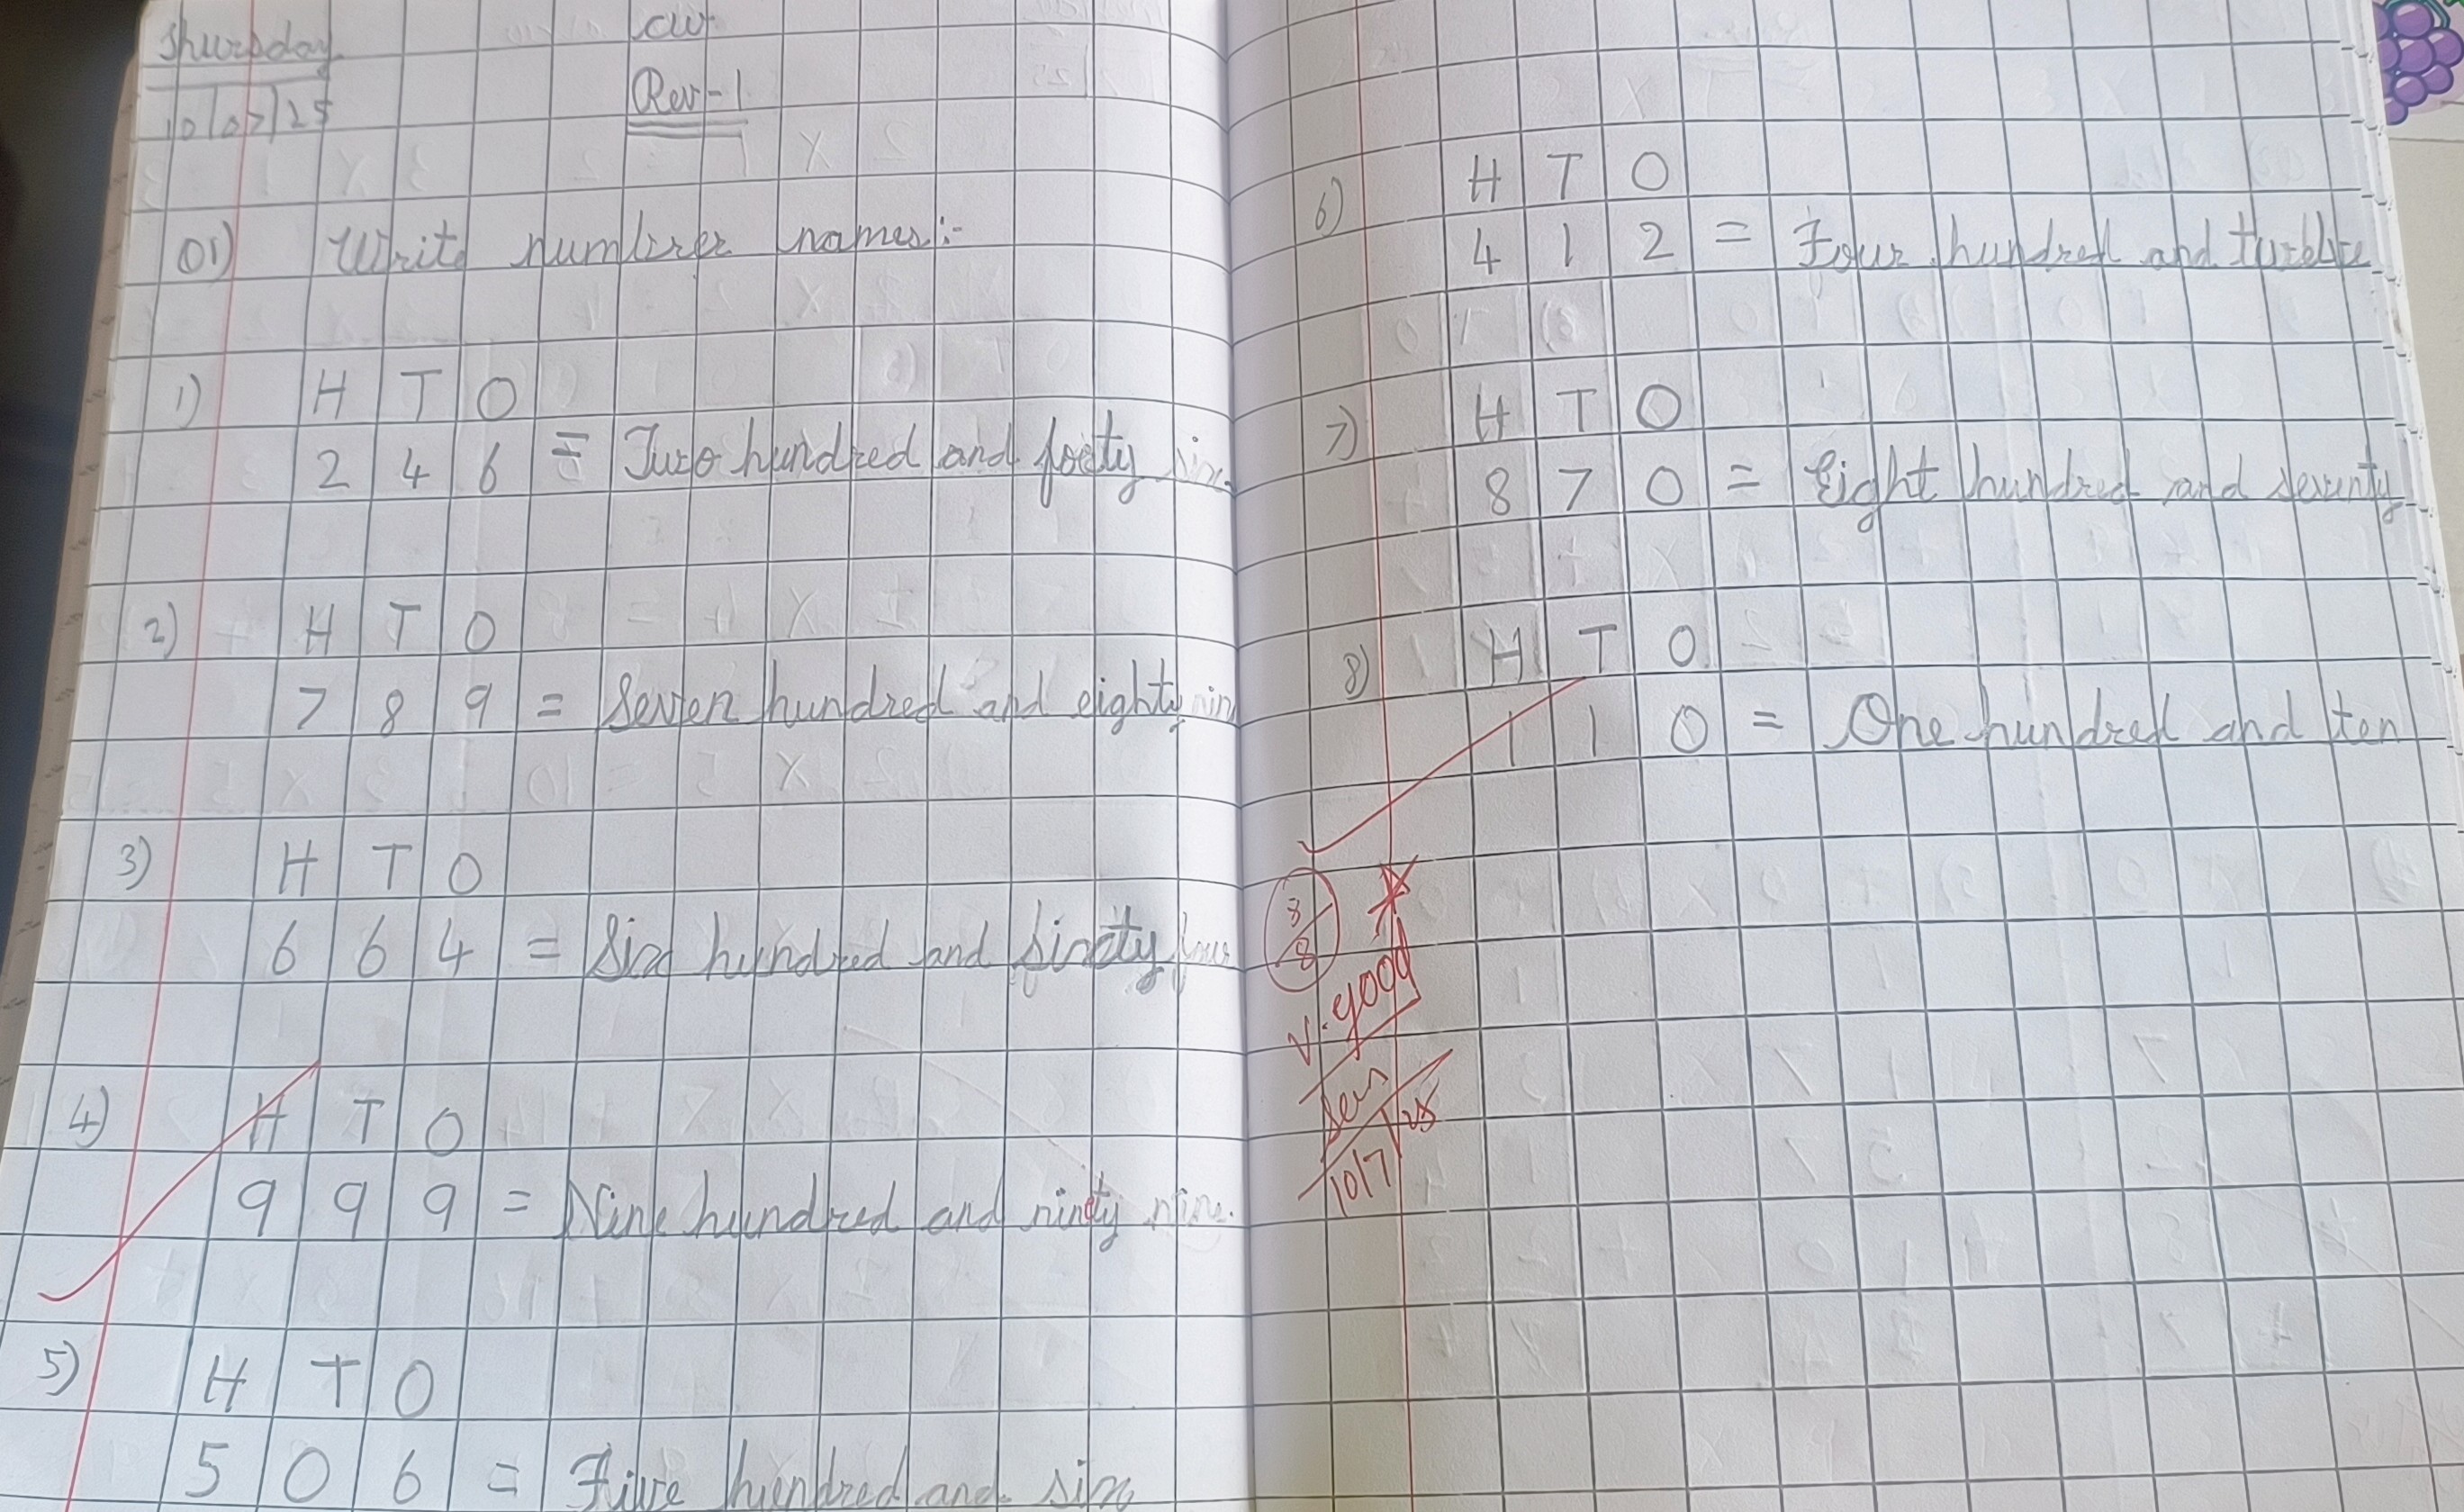 Thursday
10/07/25
CW
Rev-1
Q1) Write number names:-
1) H T O
2 4 6 = Two hundred and forty six.
2) H T O
7 8 9 = Seven hundred and eighty nine
3) H T O
6 6 4 = Six hundred and sixty four
4) H T O
9 9 9 = Nine hundred and ninety nine.
5) H T O
5 0 6 = Five hundred and six
6) H T O
4 1 2 = Four hundred and twelve
7) H T O
8 7 0 = Eight hundred and seventy
8) H T O
1 1 0 = One hundred and ten
8/8
V. good
10/7/25